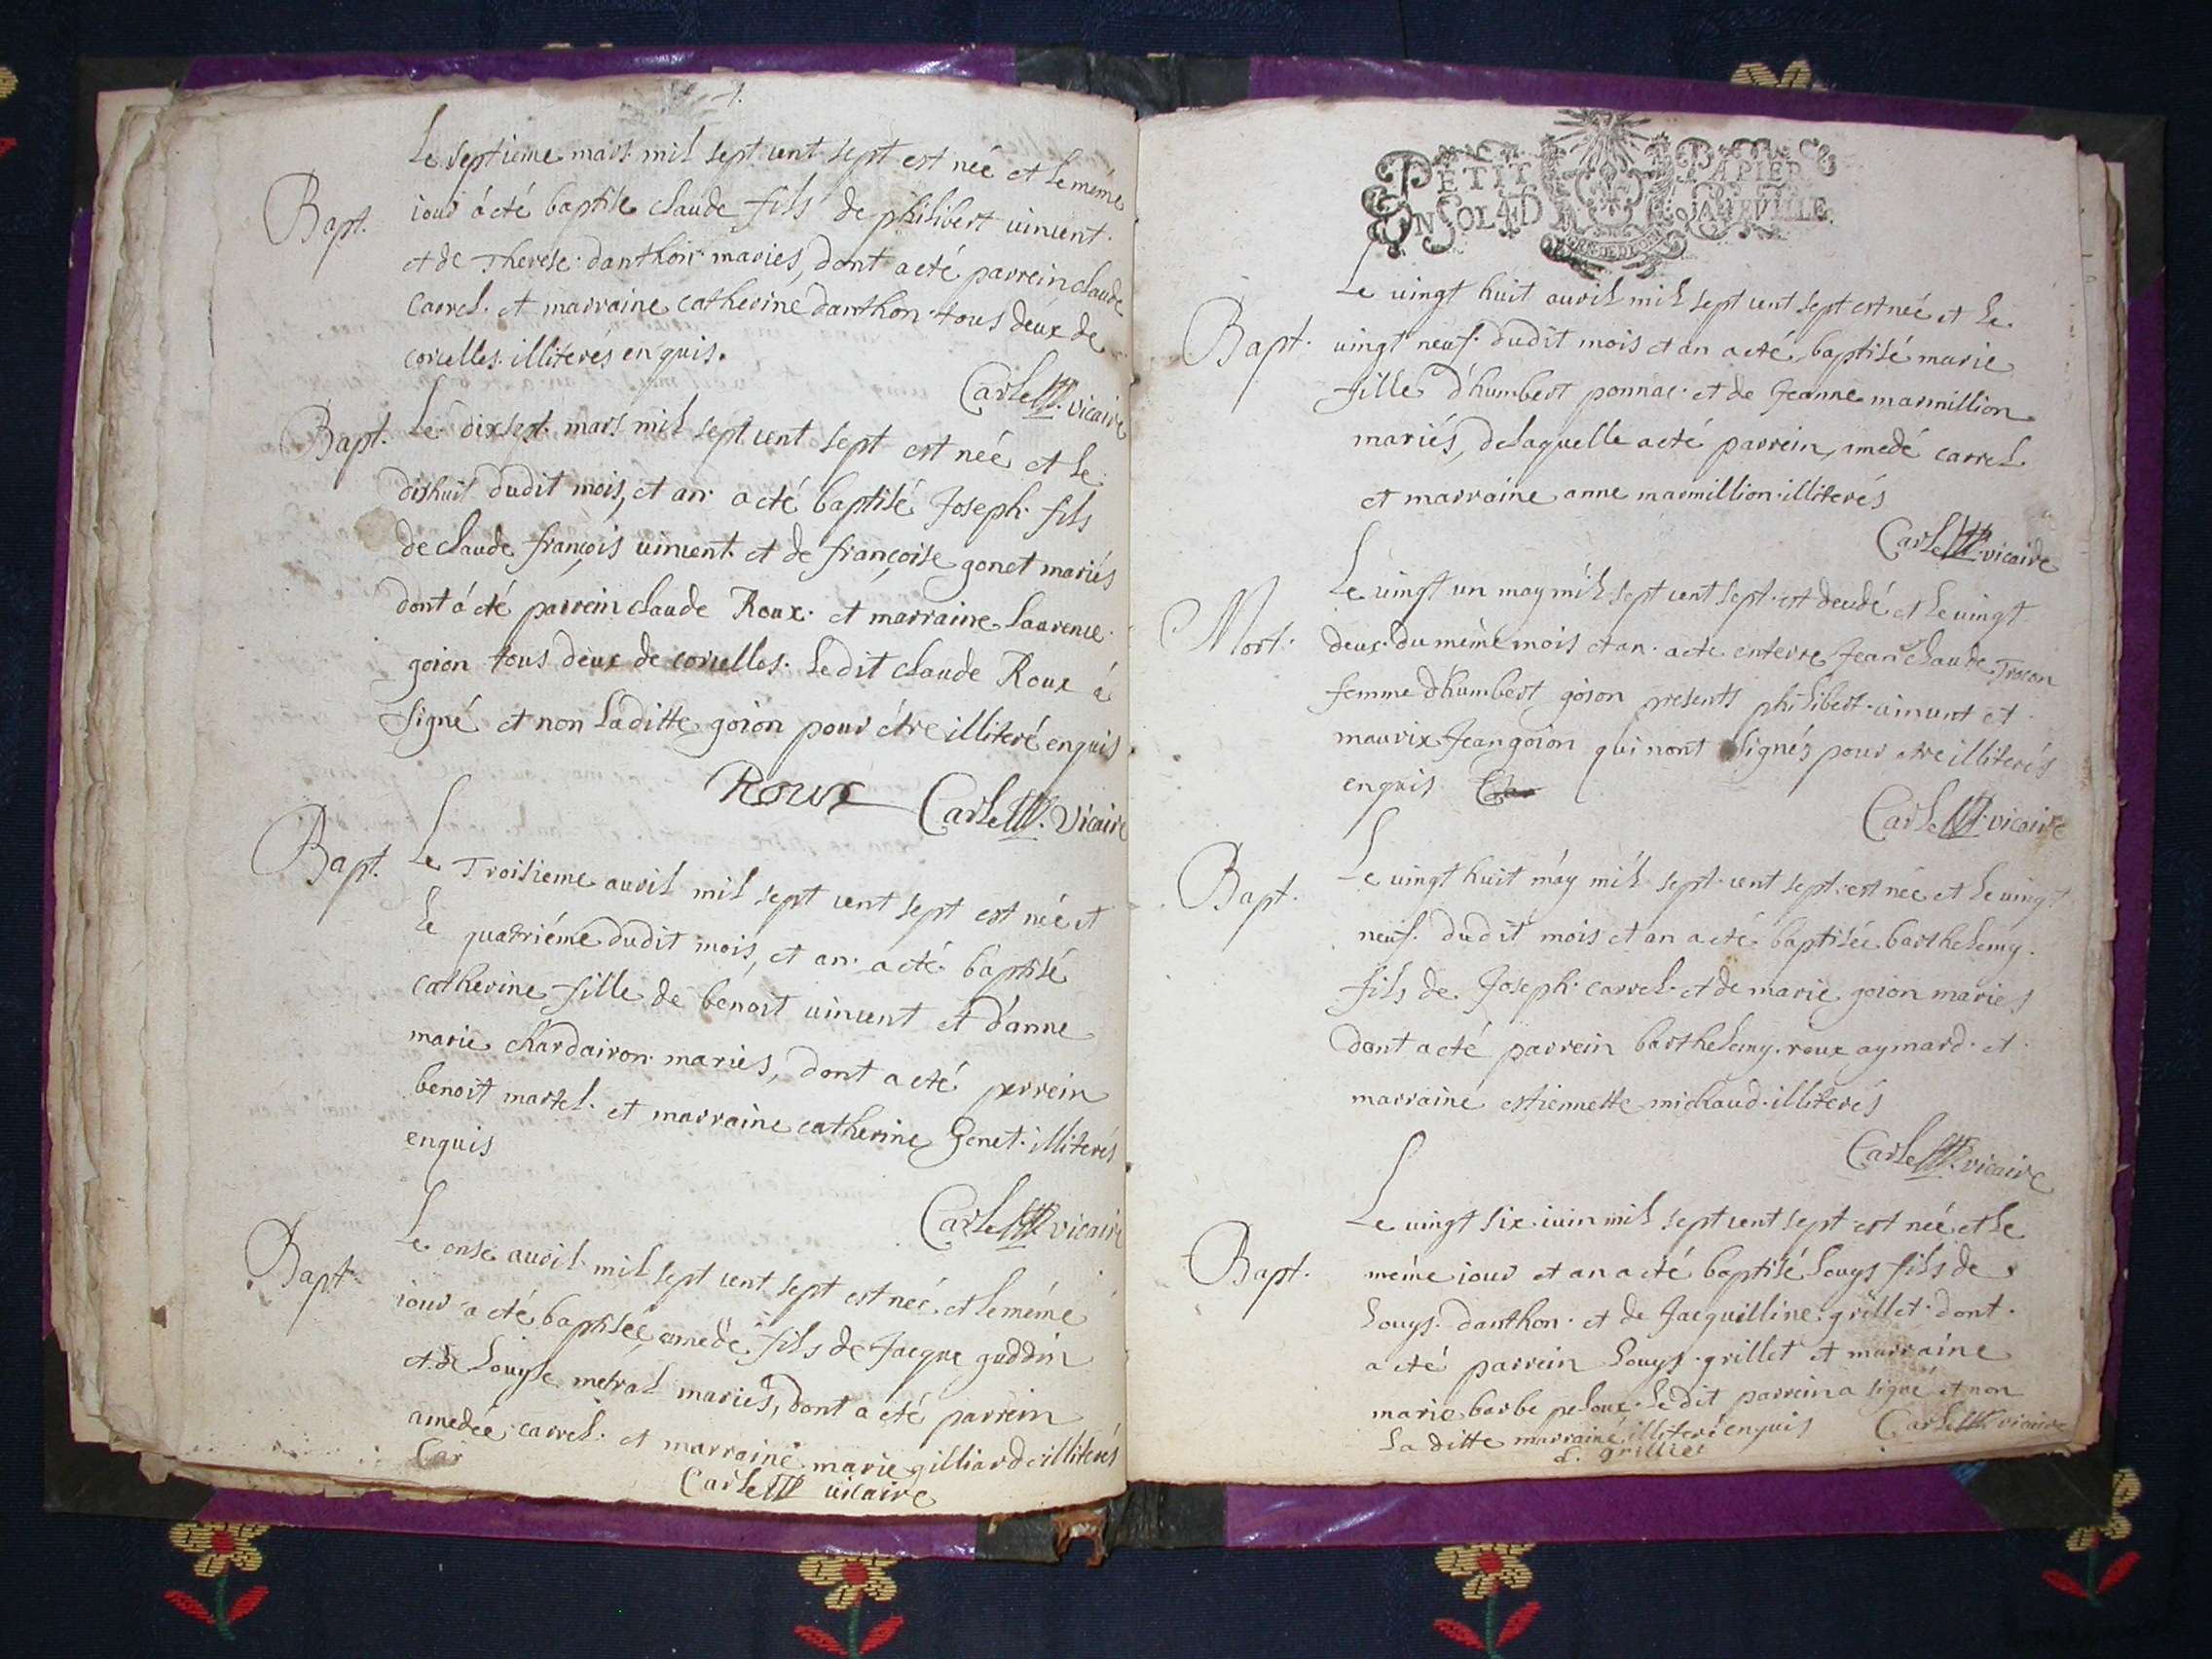 Le septieme mars mil sept cent sept est née et le méme
Bapt. iour á eté baptise claude fils de philibert uincent
et de Therese danthon mariés, dont a eté parrein claude
Carrel et marraine catherine danthon tous deux de
corcelles illiterés enquis.
Carle vicaire
Bapt. Le dixsept mars mil sept cent sept est née et le
dixhuit dudit mois, et an a eté baptisé Joseph fils
de claude françois uincent et de françoise gonet mariés
dont á eté parrein claude Roux et marraine laurence
goion tous deux de corcelles. Ledit claude Roux á
signé et non laditte goion pour étre illiteré enquis
Roux Carle Vicaire
Bapt. Le Troisieme auril mil sept cent sept est née et
le quatriéme dudit mois, et an a eté baptisé
catherine fille de benoit uincent et d'anne
marie chardairon mariés, dont a eté perrein
benoit martel et marraine catherine Genet illiterés
enquis
Carle vicaire
Bapt. Le onse auril mil sept cent sept est née et le méme
iour a eté baptisée amedé fils de Jacque guddin
et de Louyse metral mariés, dont a eté parrein
amedée carrel et marraine marie gilliard illiterés
Car
Carle uicaire
PETIT PAPIER
UN SOL 4 D LA FEUILLE
Le uingt huit auril mil sept cent sept est née et le
Bapt. uingt neuf dudit mois et an a eté baptisé marie
fille d'humbert ponnac et de Jeanne marmillion
mariés, de laquelle a eté parrein amedé carrel
et marraine anne marmillion illiterés
Carle vicaire
Le uingt un may mil sept cent sept est decedé et le uingt
Mort. deux du méme mois et an a eté enterre Jean claude Trocon
femme d'humbert goion presents philibert uincent et
maurix Jean goion qui nont signés pour etre illiterés
enquis Car
Carle vicaire
Le uingt huit máy mil sept cent sept est née et le uingt
Bapt. neuf dudit mois et an a eté baptisée barthelemy
fils de Joseph carrel et de marie goion mariés
dont a eté parrein barthelemy roux aymard et
marraine estiennette michaud illiterés
Carle vicaire
Le uingt six iuin mil sept cent sept est née et le
Bapt. méme iour et an a eté baptisé Louys fils de
Louys danthon et de Jacquilline grillet dont
a eté parrein Louys grillet et marraine
marie barbe peloux ledit parrein a signe et non
la ditte marraine illiteré enquis Carle vicaire
L. grillet